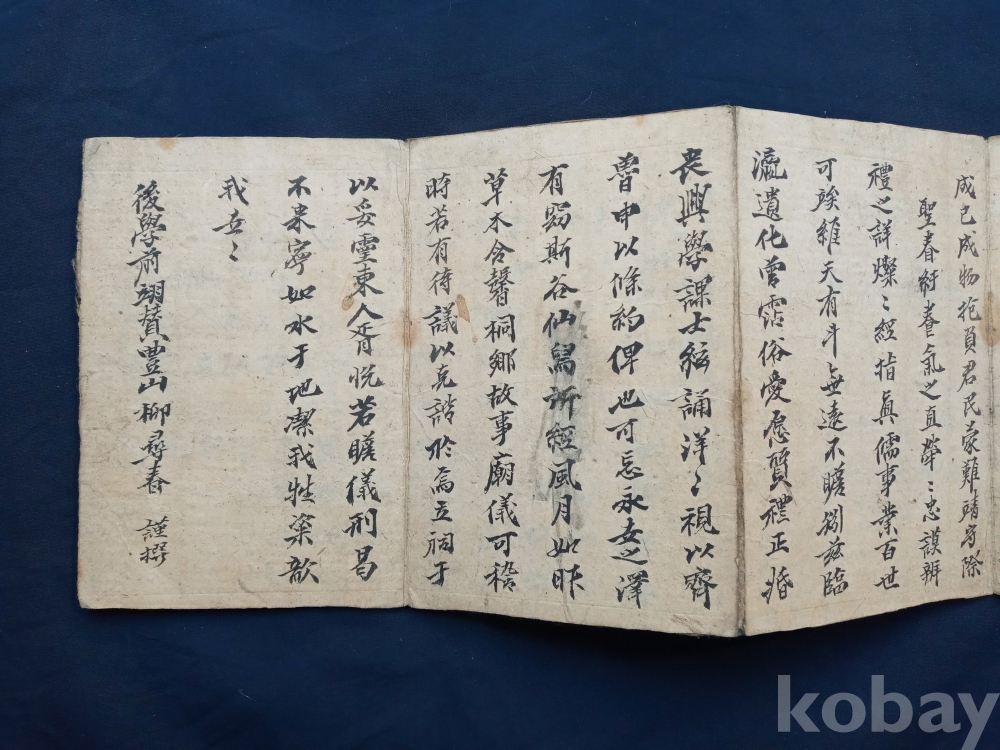 成己成物抱負君民蒙難靖守除
聖春紆養氣之直犖〻忠謨辨
禮之詳燦〻經指眞儒事業百世
可竢維天有斗無遠不瞻矧玆臨
瀛遺化曾霑俗愛愿質禮正婚
喪興學課士絃誦洋〻視以齊
魯申以條約俾也可忘永女之澤
有窈斯谷仙舃所經風月如昨
草木含馨桐鄕故事廟儀可稽
時若有待議以克諧於焉立祠于
以妥靈東人胥悅若瞻儀刑曷
不來寧如水于地潔我牲粢歆
我玄〻
後學前翊贊豊山柳尋春 謹撰
kobay